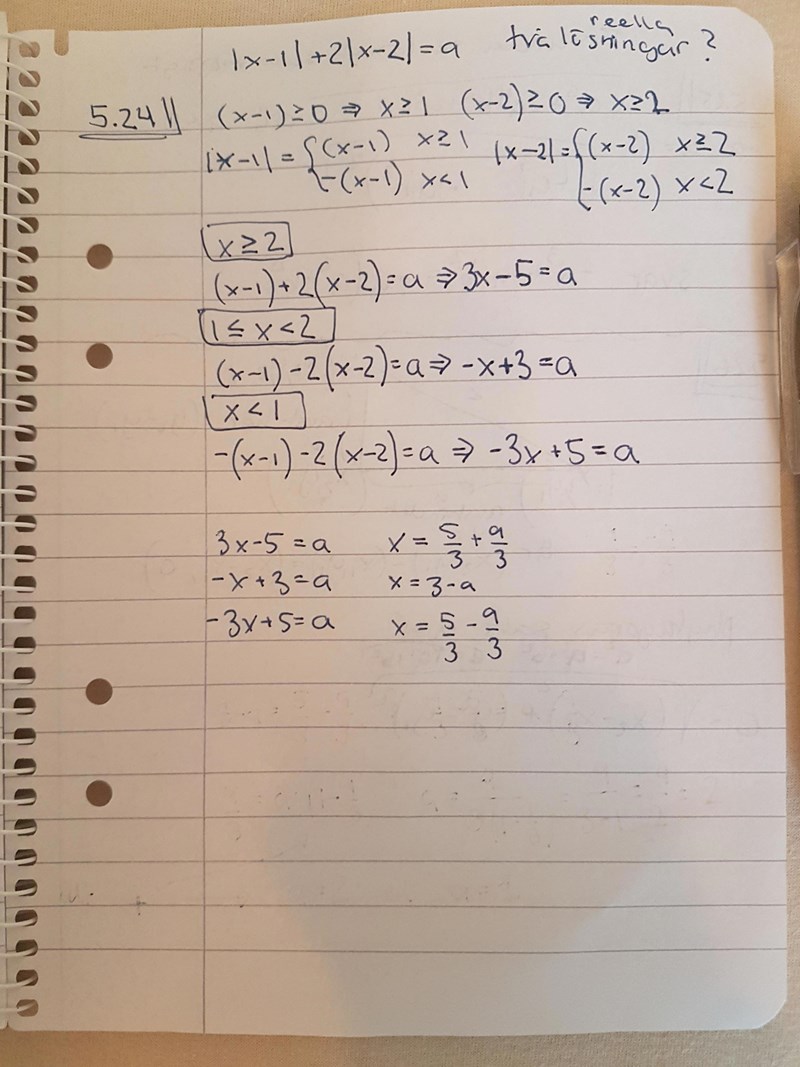 |x-1|+2|x-2|=a två reella lösningar?
5.24 (x-1)≥0 ⇒ x≥1 (x-2)≥0 ⇒ x≥2
|x-1| = { (x-1) x≥1 |x-2|= { (x-2) x≥2
-(x-1) x<1 -(x-2) x<2
x≥2
(x-1)+2(x-2)=a ⇒ 3x-5=a
1≤x<2
(x-1)-2(x-2)=a ⇒ -x+3=a
x<1
-(x-1)-2(x-2)=a ⇒ -3x+5=a
3x-5=a x = 5/3 + a/3
-x+3=a x=3-a
-3x+5=a x = 5/3 - a/3